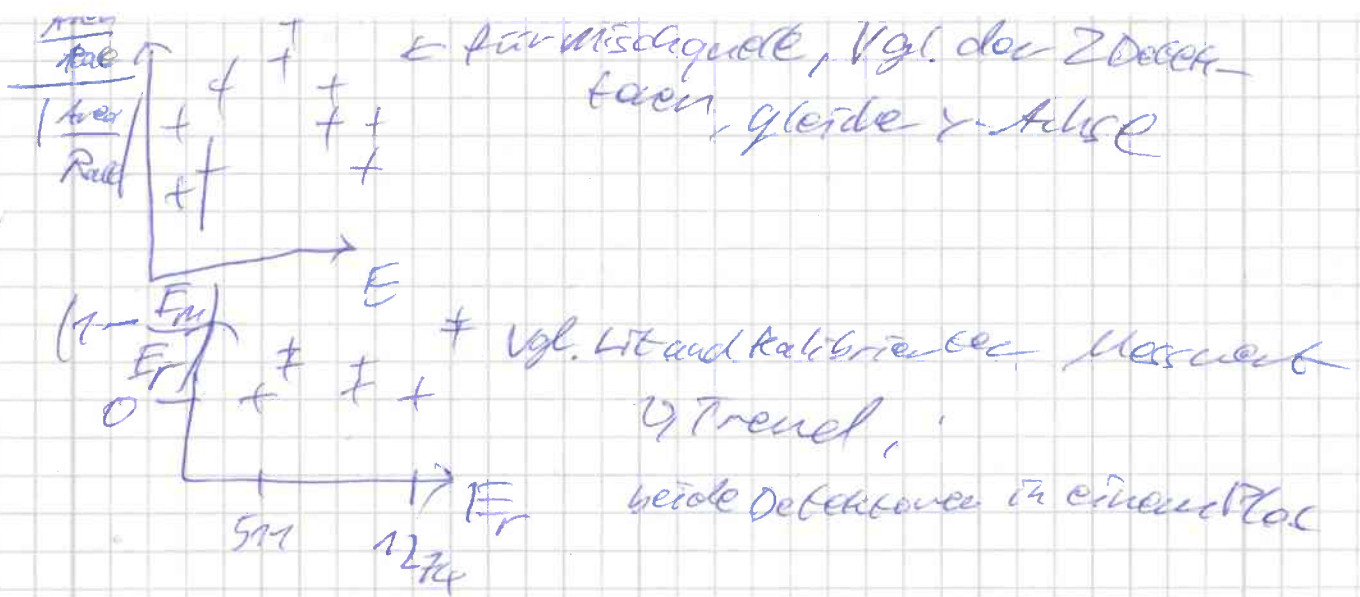 Area
← für Mischquelle, Vgl. der 2 Detek-
toren, gleiche y-Achse
Area
E
(1 - Em
Er)
0
Vgl. Lit und kalibrierter Messwert
↳ Trend,
Er
beide Detektoren in einem Plot
511
1274